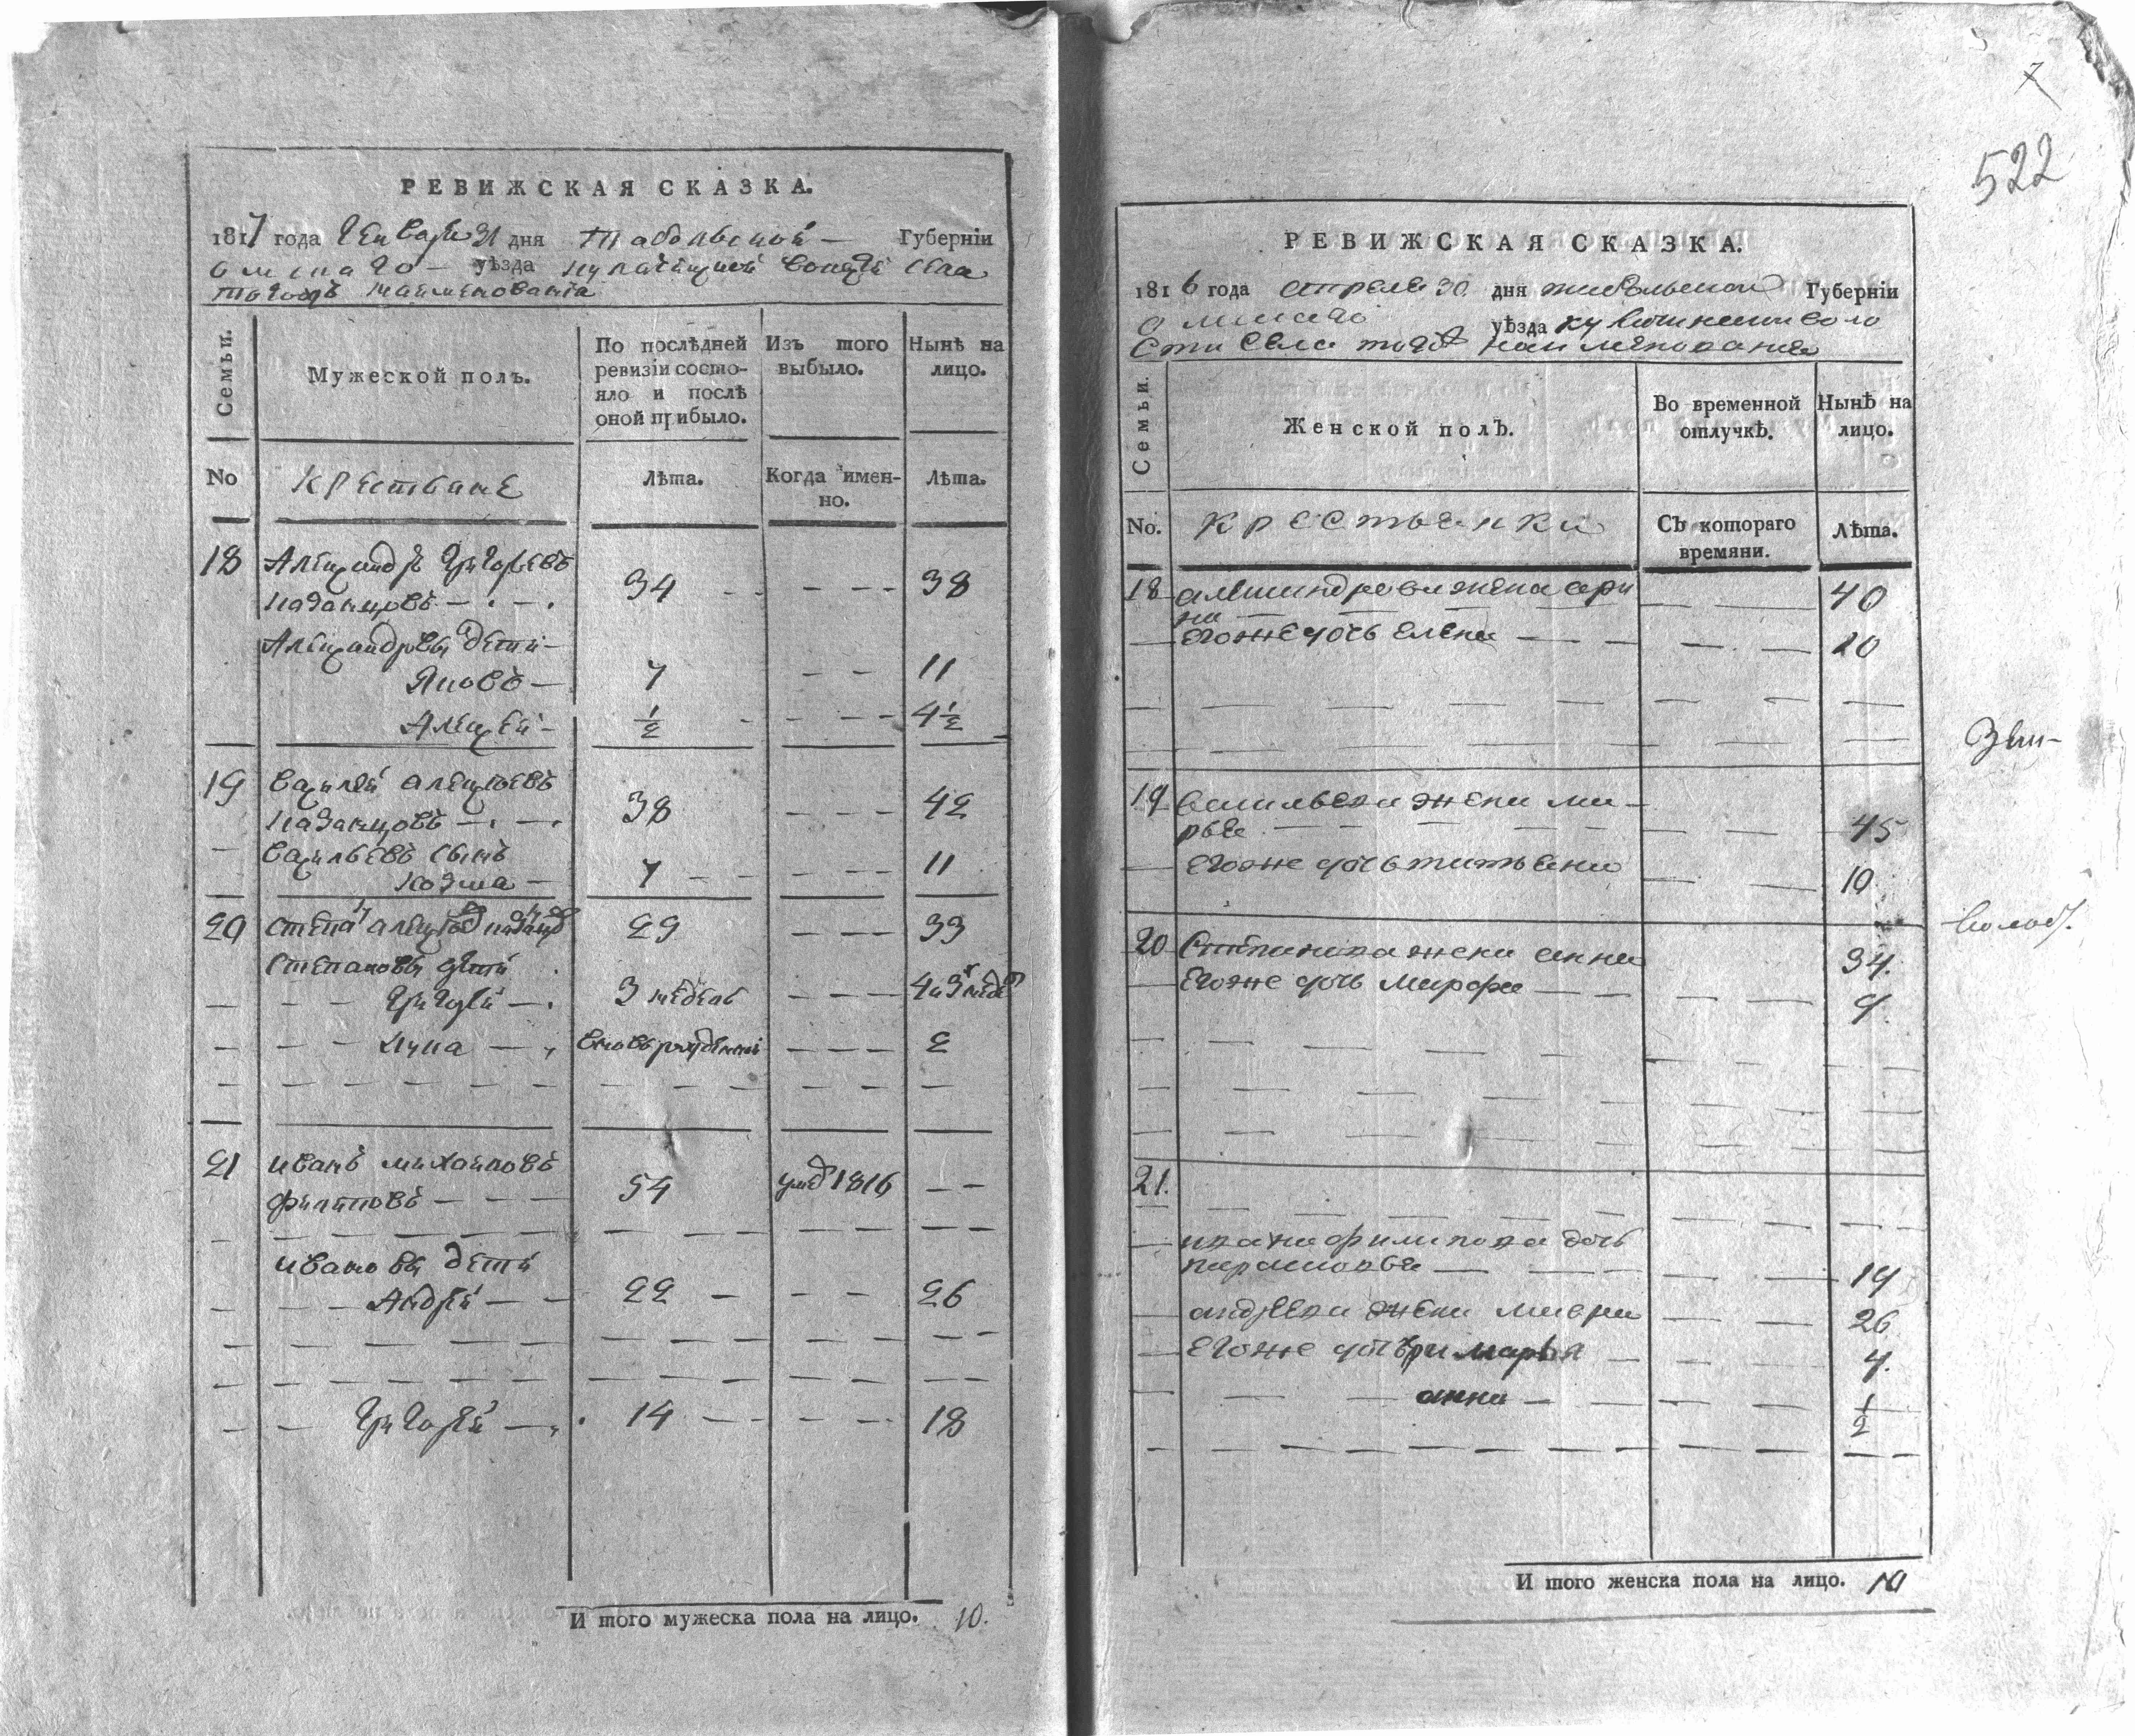 РЕВИЖСКАЯ СКАЗКА.
1817 года Генваря 31 дня Табольской Губерніи
Омскаго уѣзда села
тогожъ наименованіа
Семьи.
Мужеской полъ.
По послѣдней ревизіи состо-
яло и послѣ оной прибыло.
Изъ того выбыло.
Нынѣ на лицо.
No
Крестьяне
Лѣта.
Когда имен-
но.
Лѣта.
18 Александръ Григорьевъ
Казанцовъ 34 38
Александровы дети
Яковъ 7 11
Алексей 1/2 4 1/2
19 Василей Алексеевъ
Казанцовъ 38 42
Васильевъ сынъ
Козма 7 11
20 Степанъ Алексеевъ Казанцовъ 29 33
Степановы дети
Григорей 3 недель 4 и 3 неде
Лука вновь рожденный 2
21 Иванъ Михайловъ
Филиповъ 54 умре 1816
Ивановы дети
Андрей 22 26
Григорей 14 18
И того мужеска пола на лицо. 10.
7
522
РЕВИЖСКАЯ СКАЗКА.
1816 года апреля 30 дня тобольской Губерніи
Омскаго уѣзда воло
сти села тогожъ наименования
Семьи.
Женской полъ.
Во временной отлучкѣ.
Нынѣ на лицо.
No.
Крестьянки
Съ котораго
времяни.
Лѣта.
18 александрова жена ари
на 40
его же дочь елена 20
19 васильева жена ма
рья 45
его же дочь татьяна 10
20 Степанова жена анна 34.
его же дочь марфа 9.
21.
ивана филипова дочь
парасковья 19
андреева жена мавра 26
его же дочери марья 4.
анна 1/2
И того женска пола на лицо. 10